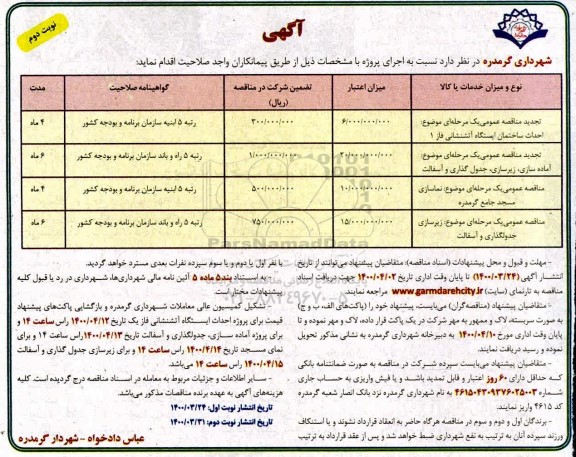 نوبت دوم
آگهی
شهرداری گرمدره در نظر دارد نسبت به اجرای پروژه با مشخصات ذیل از طریق پیمانکاران واجد صلاحیت اقدام نماید:
نوع و میزان خدمات یا کالا	میزان اعتبار	تضمین شرکت در مناقصه (ریال)	گواهینامه صلاحیت	مدت
تجدید مناقصه عمومی‌یک مرحله‌ای موضوع: احداث ساختمان ایستگاه آتشنشانی فاز ۱	۶/۰۰۰/۰۰۰/۰۰۰	۳۰۰/۰۰۰/۰۰۰	رتبه ۵ ابنیه سازمان برنامه و بودجه کشور	۴ ماه
تجدید مناقصه عمومی‌یک مرحله‌ای موضوع: آماده سازی، زیرسازی، جدول گذاری و آسفالت	۲۰/۰۰۰/۰۰۰/۰۰۰	۱/۰۰۰/۰۰۰/۰۰۰	رتبه ۵ راه و باند سازمان برنامه و بودجه کشور	۶ ماه
مناقصه عمومی‌یک مرحله‌ای موضوع: نماسازی مسجد جامع گرمدره	۱۰/۰۰۰/۰۰۰/۰۰۰	۵۰۰/۰۰۰/۰۰۰	رتبه ۵ ابنیه سازمان برنامه و بودجه کشور	۴ ماه
مناقصه عمومی‌یک مرحله‌ای موضوع: زیرسازی جدولگذاری و آسفالت	۱۵/۰۰۰/۰۰۰/۰۰۰	۷۵۰/۰۰۰/۰۰۰	رتبه ۵ راه و باند سازمان برنامه و بودجه کشور	۶ ماه
- مهلت و قبول و محل پیشنهادات (اسناد مناقصه): متقاضیان پیشنهاد می‌توانند از تاریخ
انتشار آگهی (۱۴۰۰/۰۳/۲۴) تا پایان وقت اداری تاریخ ۱۴۰۰/۰۴/۰۲ جهت دریافت اسناد
مناقصه به تارنمای (سایت) www.garmdarehcity.ir مراجعه نمایند.
- متقاضیان پیشنهاد (مناقصه گران) می‌بایست، پیشنهاد خود را (پاکت‌های الف، ب و ج)
به صورت سربسته، لاک و ممهور به مهر شرکت در یک پاکت قرار داده، لاک و مهر نموده و تا
پایان وقت اداری مورخ ۱۴۰۰/۰۴/۱۰ به دبیرخانه شهرداری گرمدره به نشانی مذکور تحویل
نموده و رسید دریافت نمایند.
- متقاضیان پیشنهاد می‌بایست سپرده شرکت در مناقصه به صورت ضمانتنامه بانکی
که حداقل دارای ۶۰ روز اعتبار و قابل تمدید باشد و یا فیش واریزی به حساب جاری
شماره ۴۶۱۵۰۴۳۰۹۳۷۶۰۲۵۰۰۳ به نام شهرداری گرمدره نزد بانک انصار شعبه گرمدره
کد ۴۶۱۵ واریز نمایند.
- برندگان اول و دوم و سوم در مناقصه هرگاه حاضر به انعقاد قرارداد نشوند و یا استنکاف
ورزند سپرده آنان به ترتیب به نفع شهرداری ضبط خواهد شد و پس از عقد قرارداد به ترتیب
با نفر اول یا دوم و یا سوم سپرده نفرات بعدی مسترد خواهد گردید.
- به استناد بند ۵ ماده ۵ آئین نامه مالی شهرداری‌ها، شهرداری در رد یا قبول کلیه
پیشنهادات مختار است.
- تشکیل کمیسیون عالی معاملات شهرداری گرمدره و بازگشایی پاکت‌های پیشنهاد
قیمت برای پروژه احداث ایستگاه آتشنشانی فاز یک تاریخ ۱۴۰۰/۴/۱۲ راس ساعت ۱۴ و
برای پروژه آماده سازی، جدولگذاری و آسفالت تاریخ ۱۴۰۰/۴/۱۳ راس ساعت ۱۴ و برای
نمای مسجد تاریخ ۱۴۰۰/۴/۱۴ راس ساعت ۱۴ و برای زیرسازی جدول گذاری و آسفالت
۱۴۰۰/۴/۱۵ راس ساعت ۱۴ می‌باشد.
- سایر اطلاعات و جزئیات مربوط به معامله در اسناد مناقصه درج گردیده است. کلیه
هزینه‌های آگهی به عهده برنده مناقصات مذکور می‌باشد.
تاریخ انتشار نوبت اول: ۱۴۰۰/۰۳/۲۴
تاریخ انتشار نوبت دوم: ۱۴۰۰/۰۳/۳۱
عباس دادخواه - شهردار گرمدره
ParsNamadData